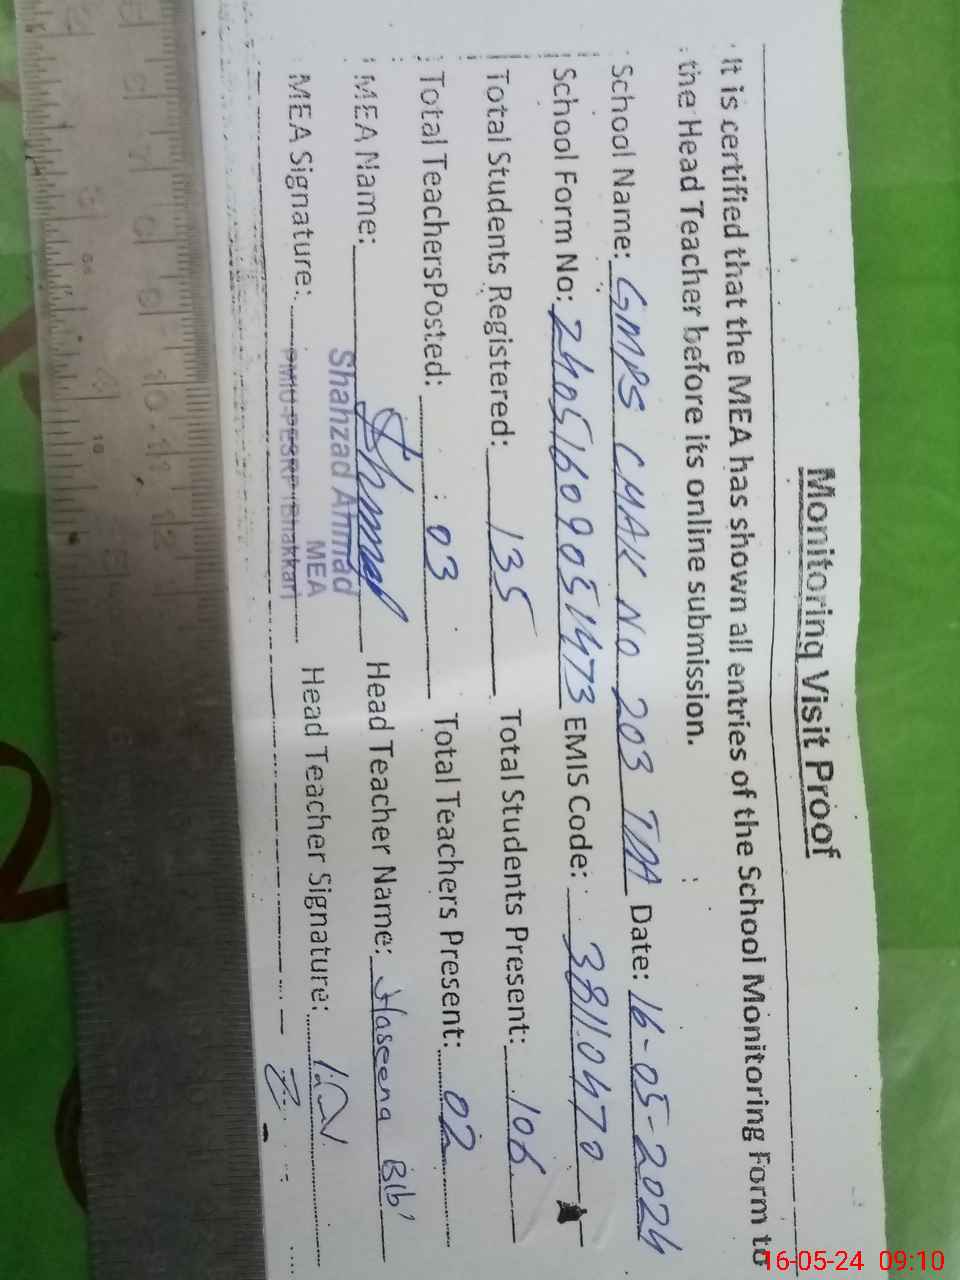 Monitoring Visit Proof
It is certified that the MEA has shown all entries of the School Monitoring Form to
the Head Teacher before its online submission.
School Name: GMPS CHAK NO 203 TDA Date: 16-05-2024
School Form No: 24051609051473 EMIS Code: 38110470
Total Students Registered: 135 Total Students Present: 106
Total TeachersPosted: 03 Total Teachers Present: 02
MEA Name: Ahmad Head Teacher Name: Haseena Bibi
Shahzad Ahmad
MEA
MEA Signature: PMIU-PESRP (Bhakkar) Head Teacher Signature:
16-05-24 09:10